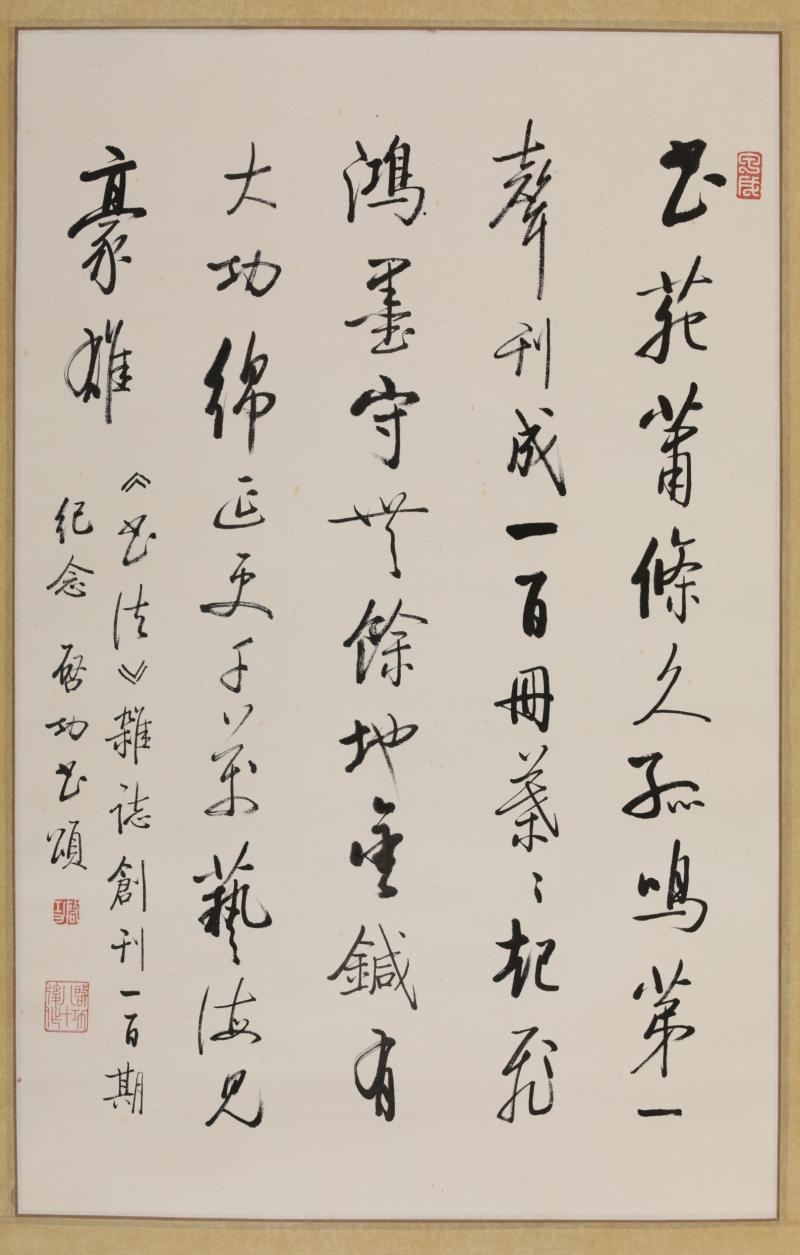 書苑蕭條久孤鳴第一
聲刊成一百冊葉〻起飛
鴻墨守無餘地金鍼有
大功綿延更千萬藝海見
豪雄
《書法》雜誌創刊一百期
紀念 啓功書頌